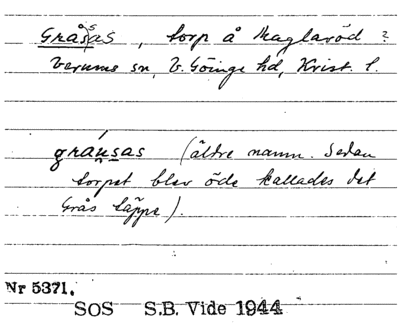 Gråsas, torp å Maglaröd ?
Verums sn, V. Göinge hd, Krist. l.
gráusas (äldre namn. Sedan
torpet blev öde kallades det
Grås täppe).
Nr 5371.
SOS S.B. Vide 1944